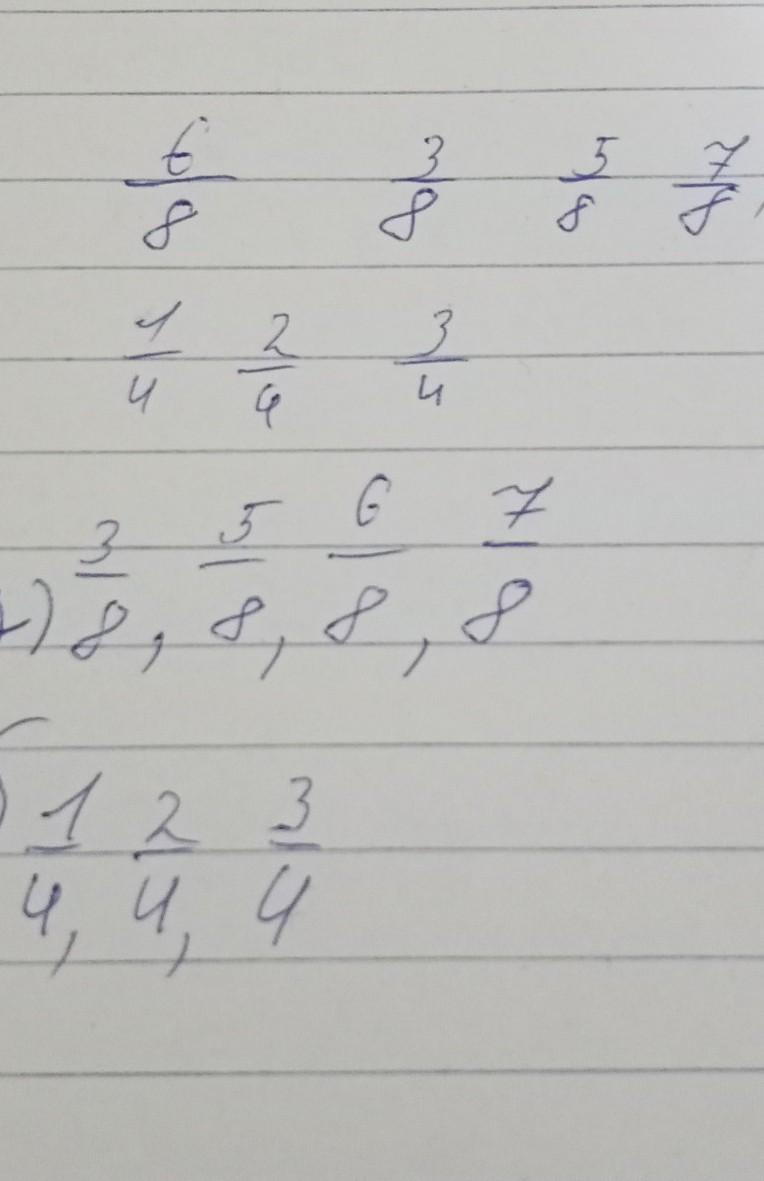 6/8 3/8 5/8 7/8,
1/4 2/4 3/4
) 3/8, 5/8, 6/8, 7/8
) 1/4, 2/4, 3/4